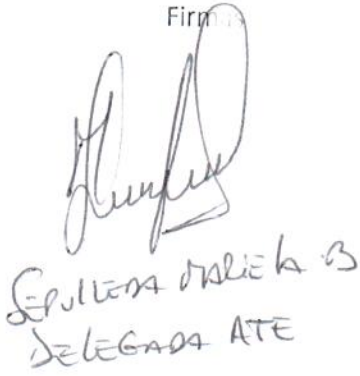 Firmas
SEPULVEDA MARIELA B
DELEGADA ATE